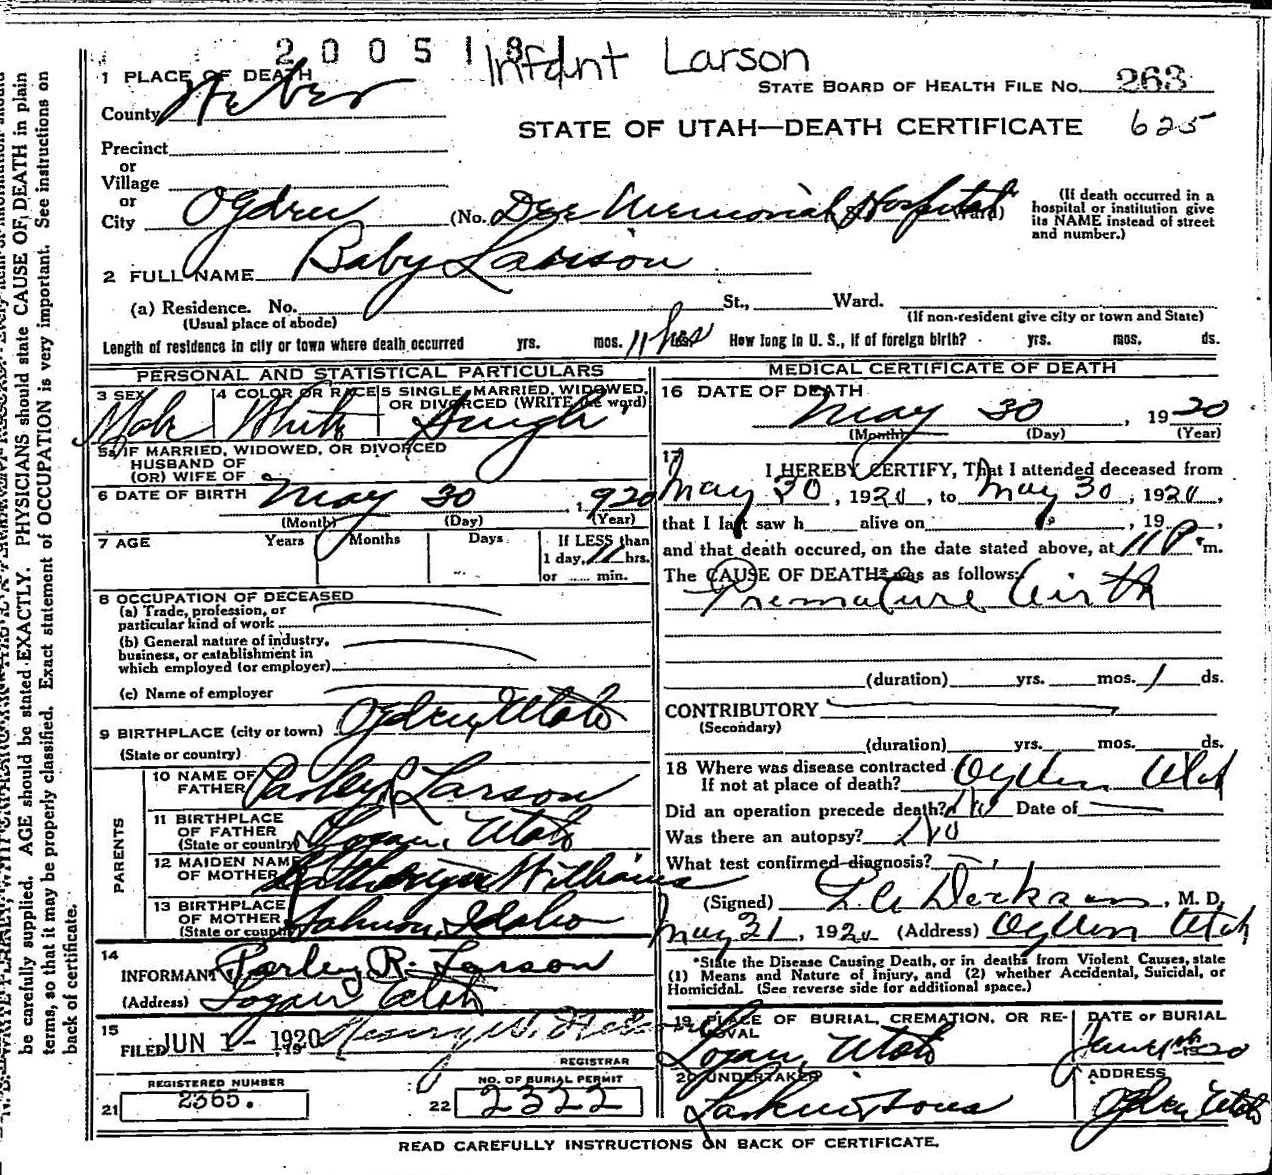 2005181
Infant Larson
1 PLACE OF DEATH
STATE BOARD OF HEALTH FILE NO. 263
County Weber
STATE OF UTAH—DEATH CERTIFICATE 625
Precinct
or
Village
or
City Ogden (No. Dee Memorial Hospital Ward)
(If death occurred in a hospital or institution give its NAME instead of street and number.)
2 FULL NAME Baby Larson
(a) Residence. No. St., Ward.
(Usual place of abode) (If non-resident give city or town and State)
Length of residence in city or town where death occurred yrs. mos. 11 hrs How long in U. S., if of foreign birth? yrs. mos. ds.
PERSONAL AND STATISTICAL PARTICULARS
3 SEX Male
4 COLOR OR RACE White
5 SINGLE, MARRIED, WIDOWED, OR DIVORCED (WRITE the word) Single
5a IF MARRIED, WIDOWED, OR DIVORCED
HUSBAND OF
(OR) WIFE OF
6 DATE OF BIRTH May 30 1920
(Month) (Day) (Year)
7 AGE Years Months Days If LESS than
1 day, 11 hrs.
or min.
8 OCCUPATION OF DECEASED
(a) Trade, profession, or
particular kind of work
(b) General nature of industry,
business, or establishment in
which employed (or employer)
(c) Name of employer
9 BIRTHPLACE (city or town) Ogden, Utah
(State or country)
PARENTS
10 NAME OF FATHER Parley R Larson
11 BIRTHPLACE OF FATHER (State or country) Logan, Utah
12 MAIDEN NAME OF MOTHER Williams
13 BIRTHPLACE OF MOTHER (State or country) Idaho
14
INFORMANT Parley R. Larson
(Address) Logan Utah
15
FILED JUN 1 - 1920 Henry W.
REGISTRAR
REGISTERED NUMBER
21 2365.
NO. OF BURIAL PERMIT
22 2322
MEDICAL CERTIFICATE OF DEATH
16 DATE OF DEATH
May 30, 1920
(Month) (Day) (Year)
17
I HEREBY CERTIFY, That I attended deceased from
May 30, 1920, to May 30, 1920,
that I last saw h alive on , 19 ,
and that death occured, on the date stated above, at 11 P m.
The CAUSE OF DEATH* was as follows:
Premature birth
(duration) yrs. mos. 1 ds.
CONTRIBUTORY
(Secondary)
(duration) yrs. mos. ds.
18 Where was disease contracted Ogden Utah
If not at place of death?
Did an operation precede death? No Date of
Was there an autopsy? No
What test confirmed diagnosis?
(Signed) , M. D.
May 31, 1920 (Address) Ogden Utah
*State the Disease Causing Death, or in deaths from Violent Causes, state
(1) Means and Nature of Injury, and (2) whether Accidental, Suicidal, or
Homicidal. (See reverse side for additional space.)
19 PLACE OF BURIAL, CREMATION, OR REMOVAL
Logan, Utah
DATE OF BURIAL
1920
20 UNDERTAKER
Larkin & Sons
ADDRESS
Ogden Utah
READ CAREFULLY INSTRUCTIONS ON BACK OF CERTIFICATE.
be carefully supplied. AGE should be stated EXACTLY. PHYSICIANS should state CAUSE OF DEATH in plain
terms, so that it may be properly classified. Exact statement of OCCUPATION is very important. See instructions on
back of certificate.